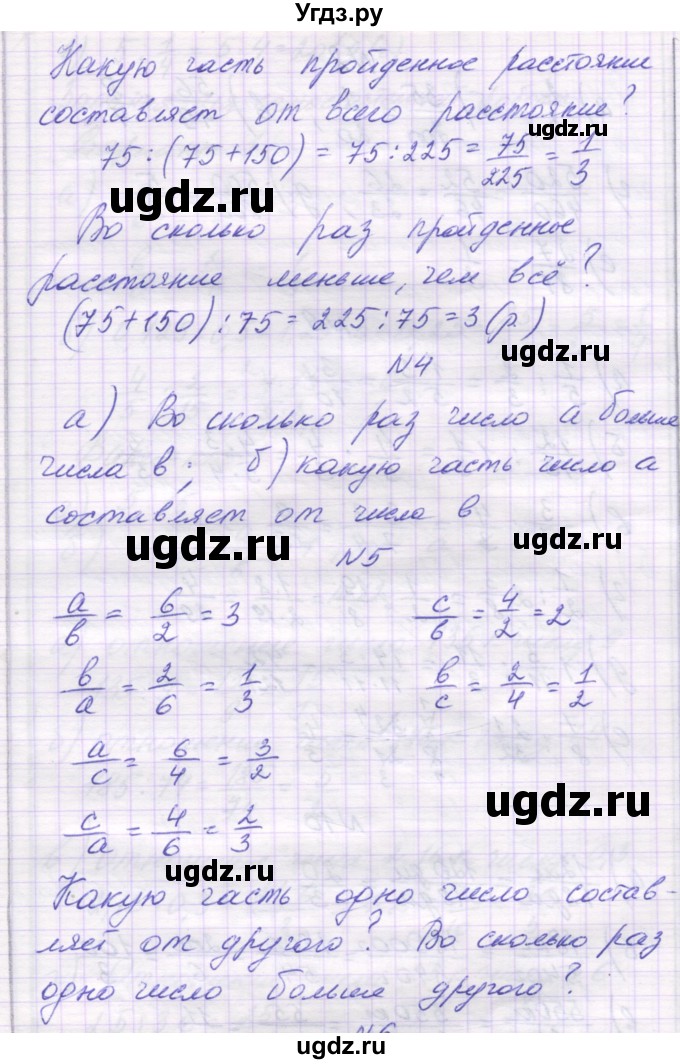 Угдз.ру
Какую часть пройденное расстояние
составляет от всего расстояние?
75 : (75+150) = 75 : 225 = 75/225 = 1/3
Во сколько раз пройденное
расстояние меньше, чем всё?
(75+150) : 75 = 225 : 75 = 3 (р.)
N4
а) Во сколько раз число а больше
числа в; б) какую часть число а
составляет от числа в
N5
a/в = 6/2 = 3 c/в = 4/2 = 2
в/a = 2/6 = 1/3 в/c = 2/4 = 1/2
a/c = 6/4 = 3/2
c/a = 4/6 = 2/3
Какую часть одно число состав-
ляет от другого? Во сколько раз
одно число больше другого?
N6
ugdz.ru
ugdz.ru
ugdz.ru
ugdz.ru
ugdz.ru
ugdz.ru
ugdz.ru
ugdz.ru
ugdz.ru